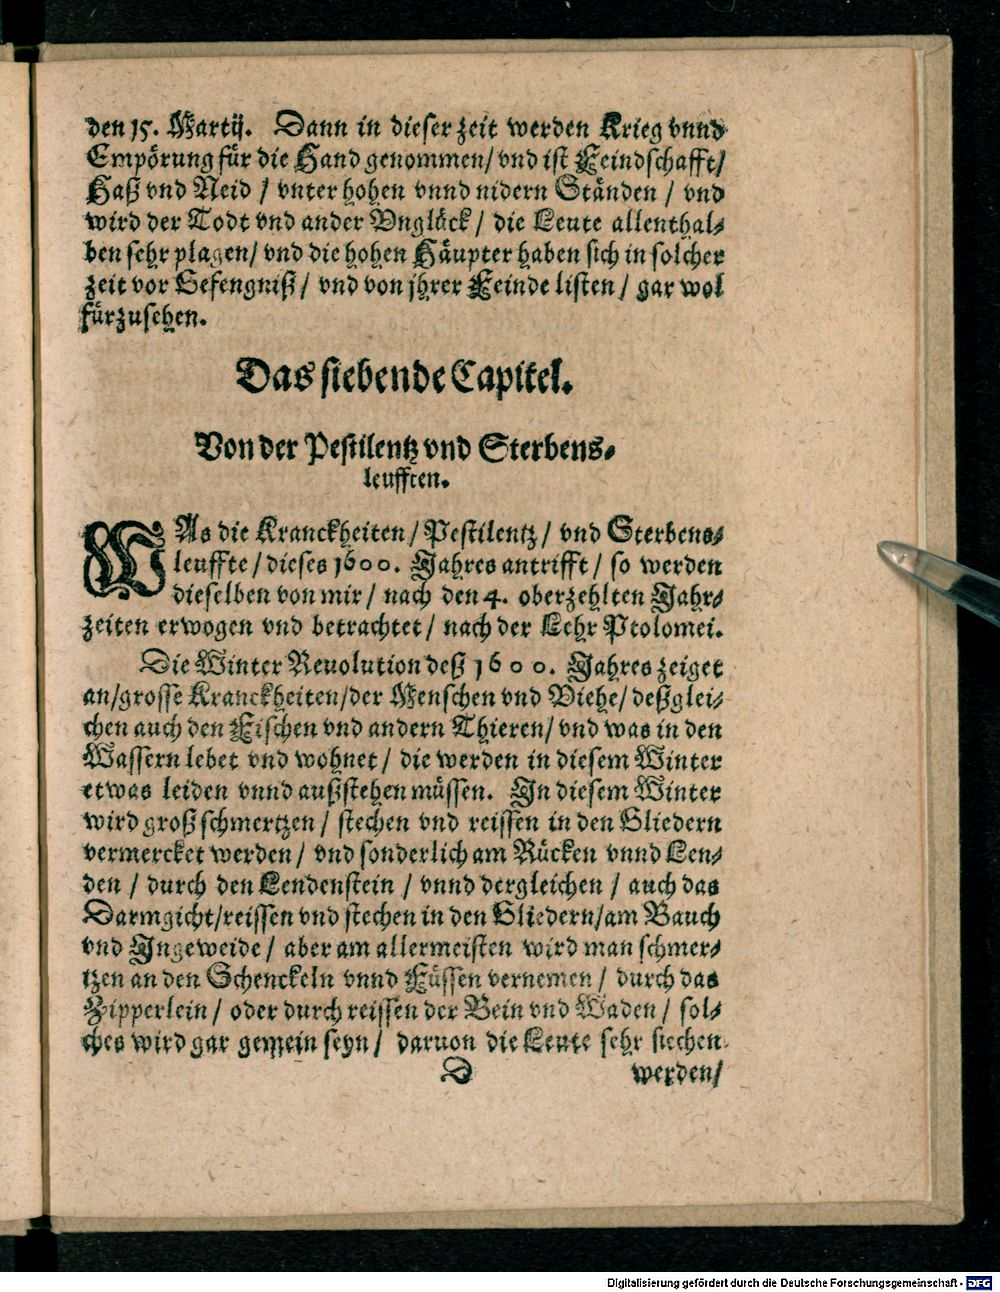 den 15. Martij. Dann in dieser zeit werden Krieg vnnd
Empörung für die Hand genommen/ vnd ist Feindschafft/
Haß vnd Neid / vnter hohen vnnd nidern Ständen / vnd
wird der Todt vnd ander Vnglück / die Leute allenthal⸗
ben sehr plagen/ vnd die hohen Häupter haben sich in solcher
zeit vor Gefengniß / vnd von jhrer Feinde listen / gar wol
fürzusehen.
Das siebende Capitel.
Von der Pestilentz vnd Sterbens⸗
leufften.
WAs die Kranckheiten / Pestilentz / vnd Sterbens⸗
leuffte / dieses 1600. Jahres antrifft / so werden
dieselben von mir / nach den 4. oberzehlten Jahr⸗
zeiten erwogen vnd betrachtet / nach der Lehr Ptolomei.
Die Winter Reuolution deß 1600. Jahres zeiget
an/grosse Kranckheiten/der Menschen vnd Viehe/ deßglei⸗
chen auch den Fischen vnd andern Thieren/ vnd was in den
Wassern lebet vnd wohnet / die werden in diesem Winter
etwas leiden vnnd außstehen müssen. In diesem Winter
wird groß schmertzen / stechen vnd reissen in den Gliedern
vermercket werden / vnd sonderlich am Rücken vnnd Len⸗
den / durch den Lendenstein / vnnd dergleichen / auch das
Darmgicht/reissen vnd stechen in den Gliedern/am Bauch
vnd Ingeweide / aber am allermeisten wird man schmer⸗
tzen an den Schenckeln vnnd Füssen vernemen / durch das
Zipperlein / oder durch reissen der Bein vnd Waden / sol⸗
ches wird gar gemein seyn / daruon die Leute sehr siechen
D werden/
Digitalisierung gefördert durch die Deutsche Forschungsgemeinschaft - DFG